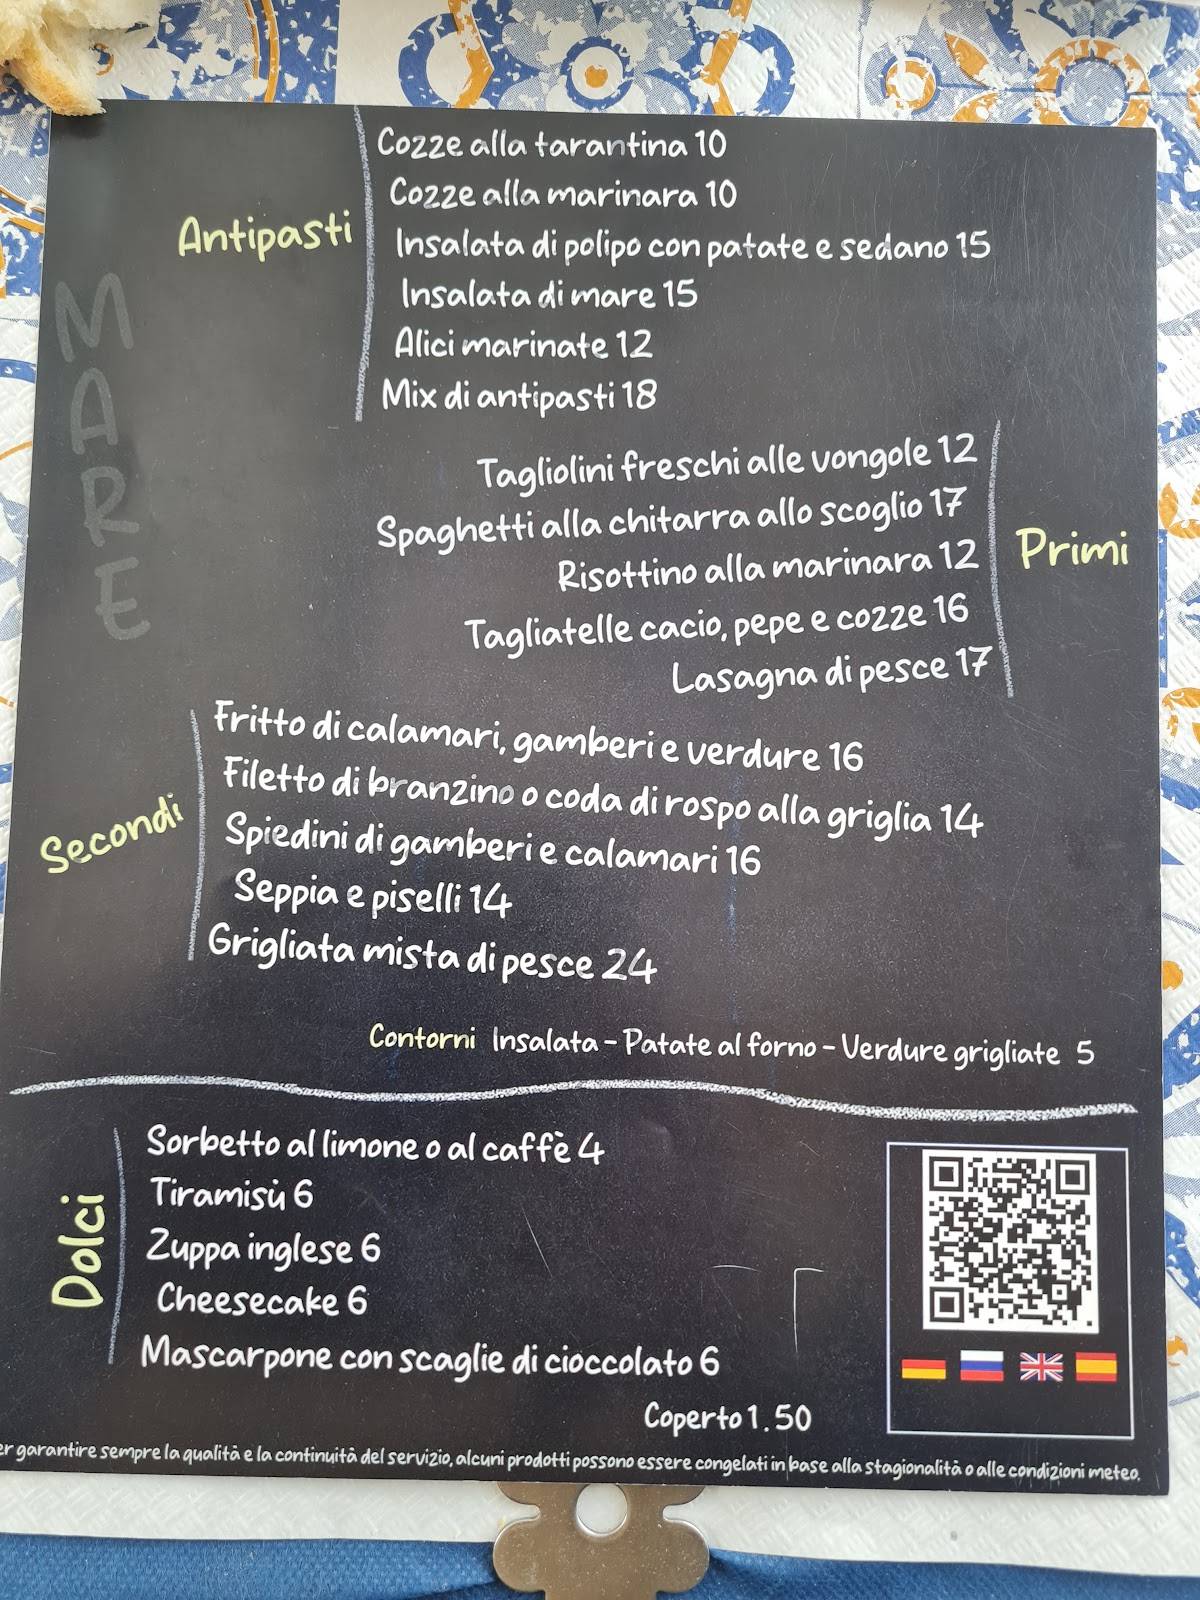 MARE
Antipasti
Cozze alla tarantina 10
Cozze alla marinara 10
Insalata di polipo con patate e sedano 15
Insalata di mare 15
Alici marinate 12
Mix di antipasti 18
Primi
Tagliolini freschi alle vongole 12
Spaghetti alla chitarra allo scoglio 17
Risottino alla marinara 12
Tagliatelle cacio, pepe e cozze 16
Lasagna di pesce 17
Secondi
Fritto di calamari, gamberi e verdure 16
Filetto di branzino o coda di rospo alla griglia 14
Spiedini di gamberi e calamari 16
Seppia e piselli 14
Grigliata mista di pesce 24
Contorni Insalata - Patate al forno - Verdure grigliate 5
Dolci
Sorbetto al limone o al caffè 4
Tiramisù 6
Zuppa inglese 6
Cheesecake 6
Mascarpone con scaglie di cioccolato 6
Coperto 1.50
er garantire sempre la qualità e la continuità del servizio, alcuni prodotti possono essere congelati in base alla stagionalità o alle condizioni meteo.